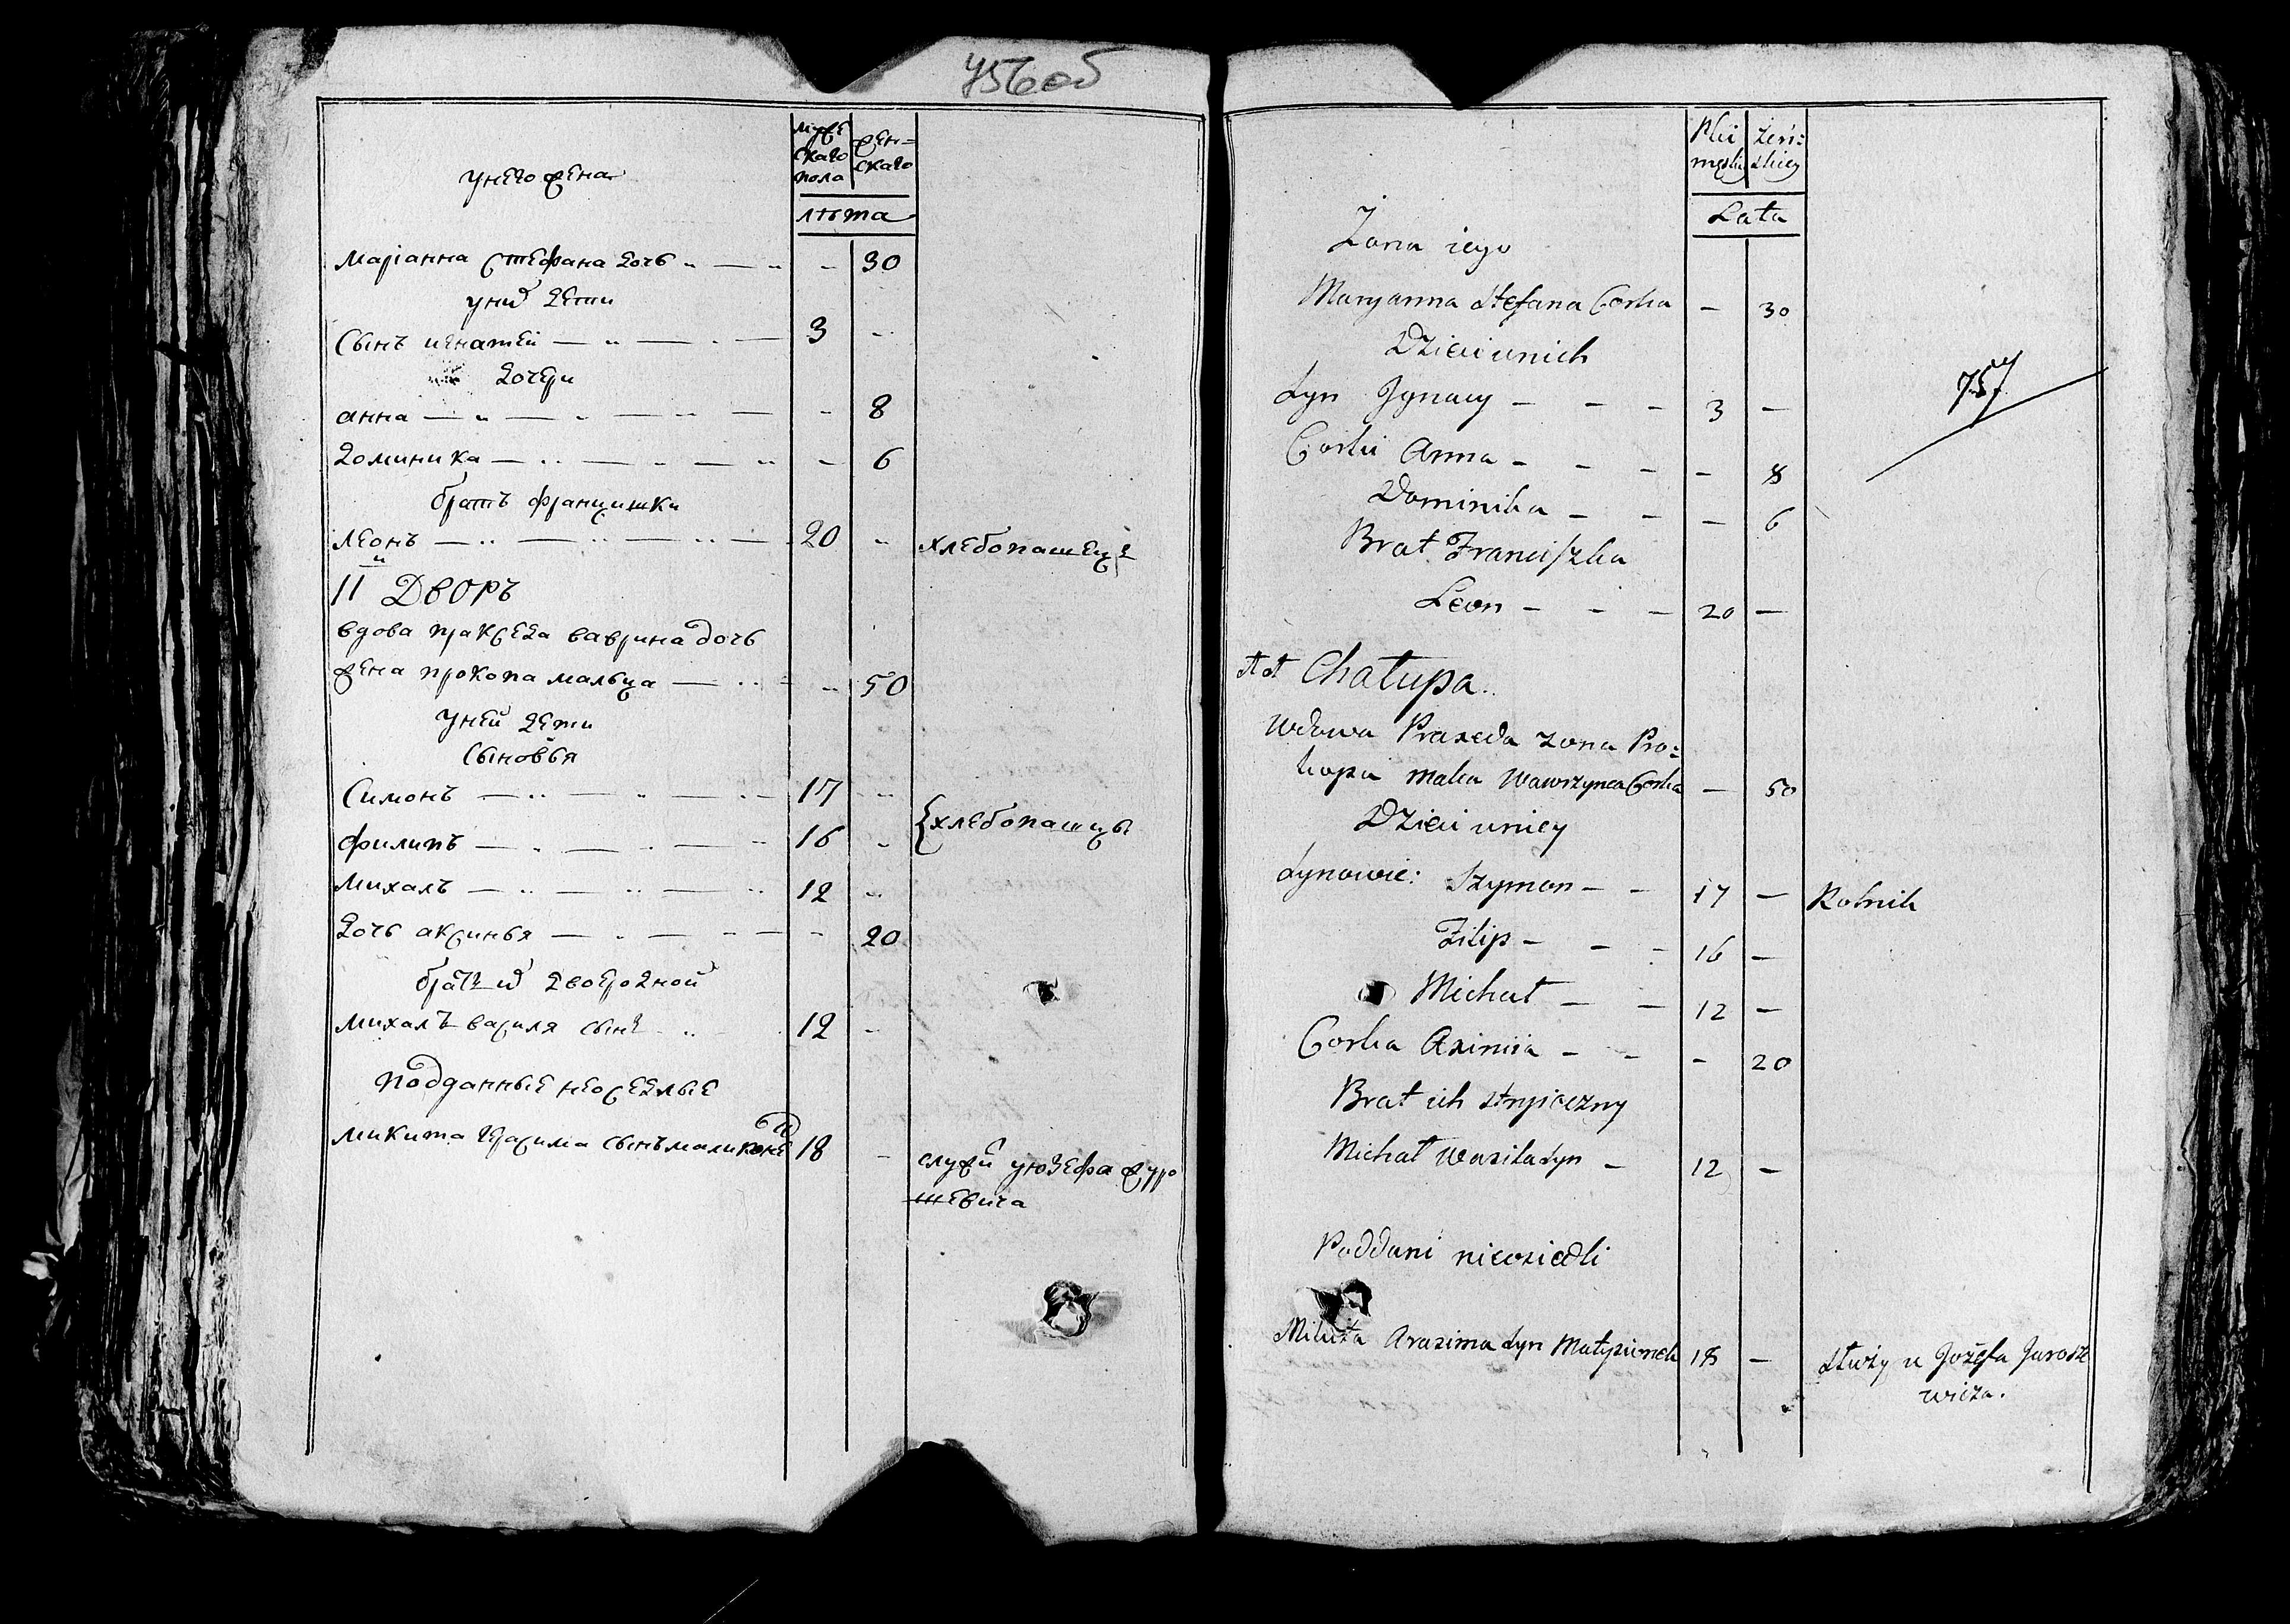 756об
муже
скаго
пола
жен=
скаго
лѣта
у него жена
Маріанна Стефана дочь " — " - 30
у них дети
Сынъ игнатей — " — " — 3 -
дочери
анна — " — " — " — - 8
доминика — " — " — " - 6
братъ францишки
леонъ — " — " — " — 20 - хлебопашец
11й ДВОРЪ
вдова пракседа ваврина дочь
жена прокопа мальца — " - 50
У ней дети
Сыновья
Симонъ — " — " — " — 17 -
филипъ — " — " — " 16 - {хлебопашцы
михалъ — " — " — " 12 -
дочь аксинья — " — " — - 20
брат их двоюродной
михалъ василя сынъ " 12 -
подданные неоседлые
микита герасима сынъ 18 - служи у юзефа яро
шевича
757
Plci
męskiey
żeń:
skiey
Lata
Żona iego
Maryanna Stefana Corka — 30
Dzieci u nich
Syn Jgnacy - - - 3 —
Corki Anna - - - - 8
Dominika - - - 6
Brat Franciszka
Leon - - - 20 —
11 Chałupa.
Wdowa Praxeda żona Pro:
kopa malca Wawrzynca Corka — 50
Dzieci u niey
Synowie: Szymon - - 17 — Rolnik
Filip - - - 16 —
Michał - - 12 —
Corka Axinia - - - 20
Brat ich stryieczny
Michał Wasila Syn - 12 —
Poddani nieosiedli
Mikita Arasima Syn 18 — służy u Jozefa Jarosze
wicza.